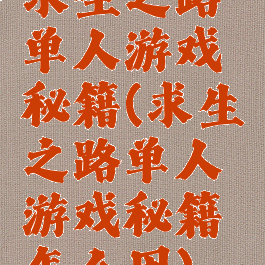 求生之路
单人游戏
秘籍(求生
之路单人
游戏秘籍
怎么用)